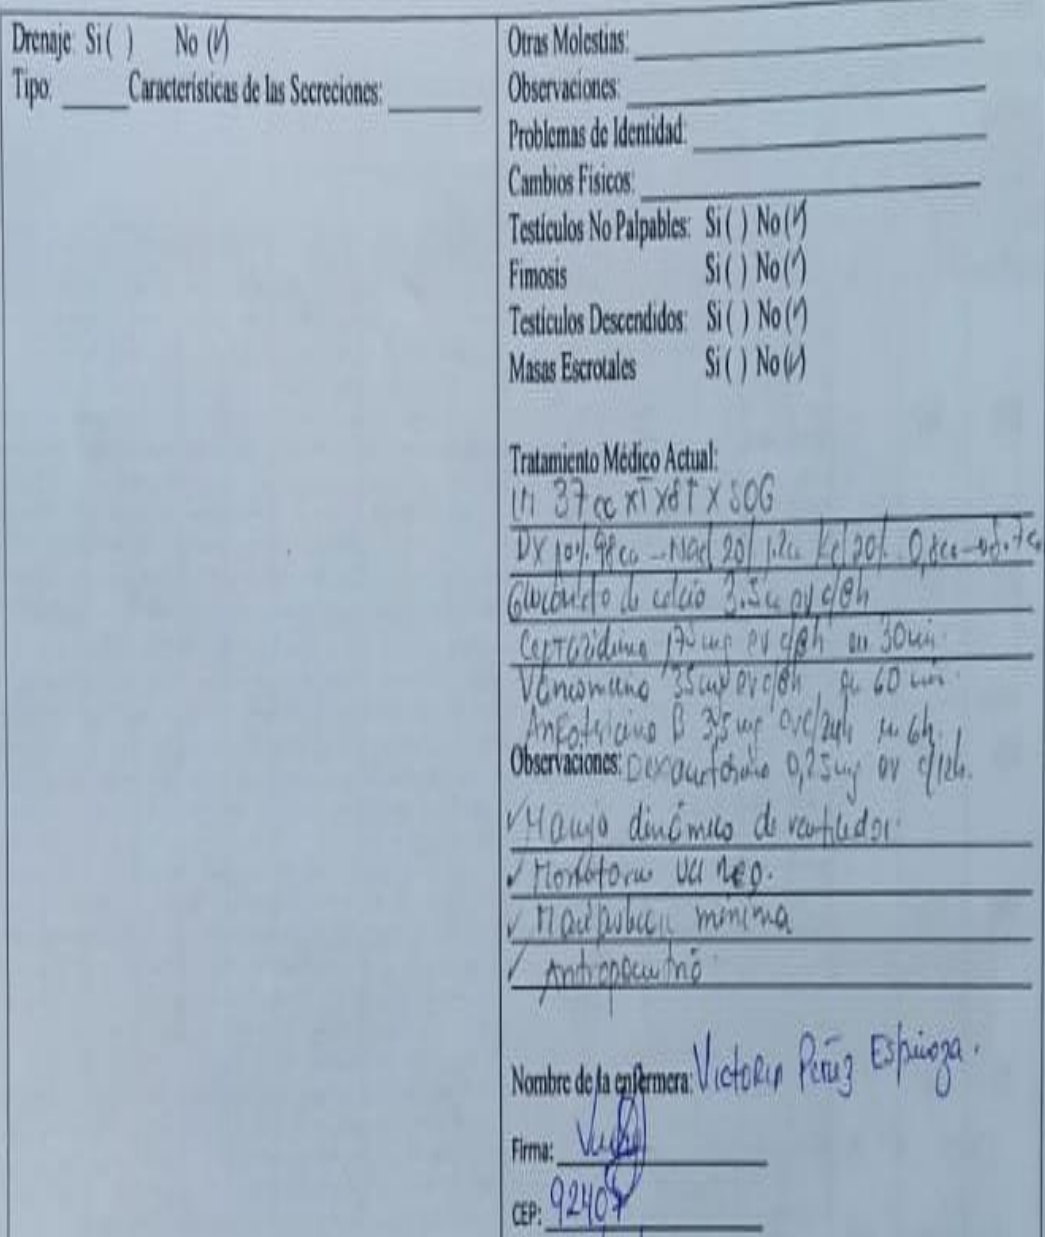 Drenaje: Si ( ) No (✓)
Tipo: ______ Características de las Secreciones: ______
Otras Molestias: ______
Observaciones: ______
Problemas de Identidad: ______
Cambios Fisicos: ______
Testiculos No Palpables: Si ( ) No (✓)
Fimosis Si ( ) No (✓)
Testiculos Descendidos: Si ( ) No (✓)
Masas Escrotales Si ( ) No (✓)
Tratamiento Médico Actual:
37 cc x SOG
DX 10% 98 cc - Nacl 20% 1.2cc Kcl 20% 0,8cc
Gluconato de calcio 3.5cc ev c/8h
Ceftazidima ev c/8h en 30 min.
Vancomicina 35 mg ev c/8h en 60 min.
Anfotericina B 3,5 mg ev c/24h en 6h.
Observaciones: Dexametasona 0,25 mg ev c/12h.
✓ Manejo dinámico de ventilador.
✓ Monitoreo UCI neo.
✓ mínima
✓
Nombre de la enfermera: Victoria Perez Espinoza.
Firma:
CEP: 92407